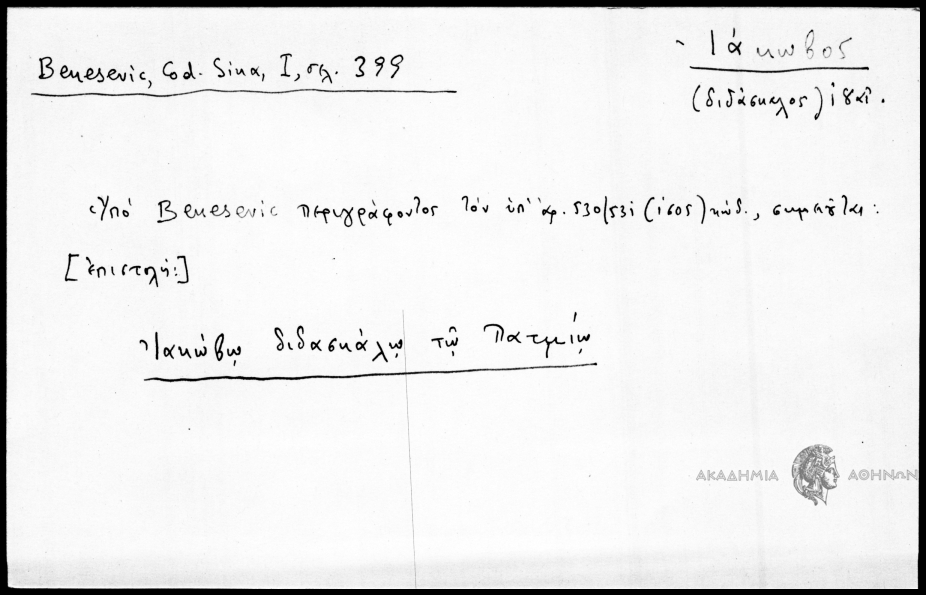 Benesevic, Cod. Sina, I, σελ. 399
Ἰάκωβος
(διδάσκαλος) ιηαι.
Ὑπό Benesevic περιγράφοντος τόν ὑπ' ἀρ. 530/531 (ιεος) κώδ., σημειοῦται:
[ἐπιστολή:]
Ἰακώβῳ διδασκάλῳ τῷ Πατμίῳ
ΑΚΑΔΗΜΙΑ ΑΘΗΝΩΝ